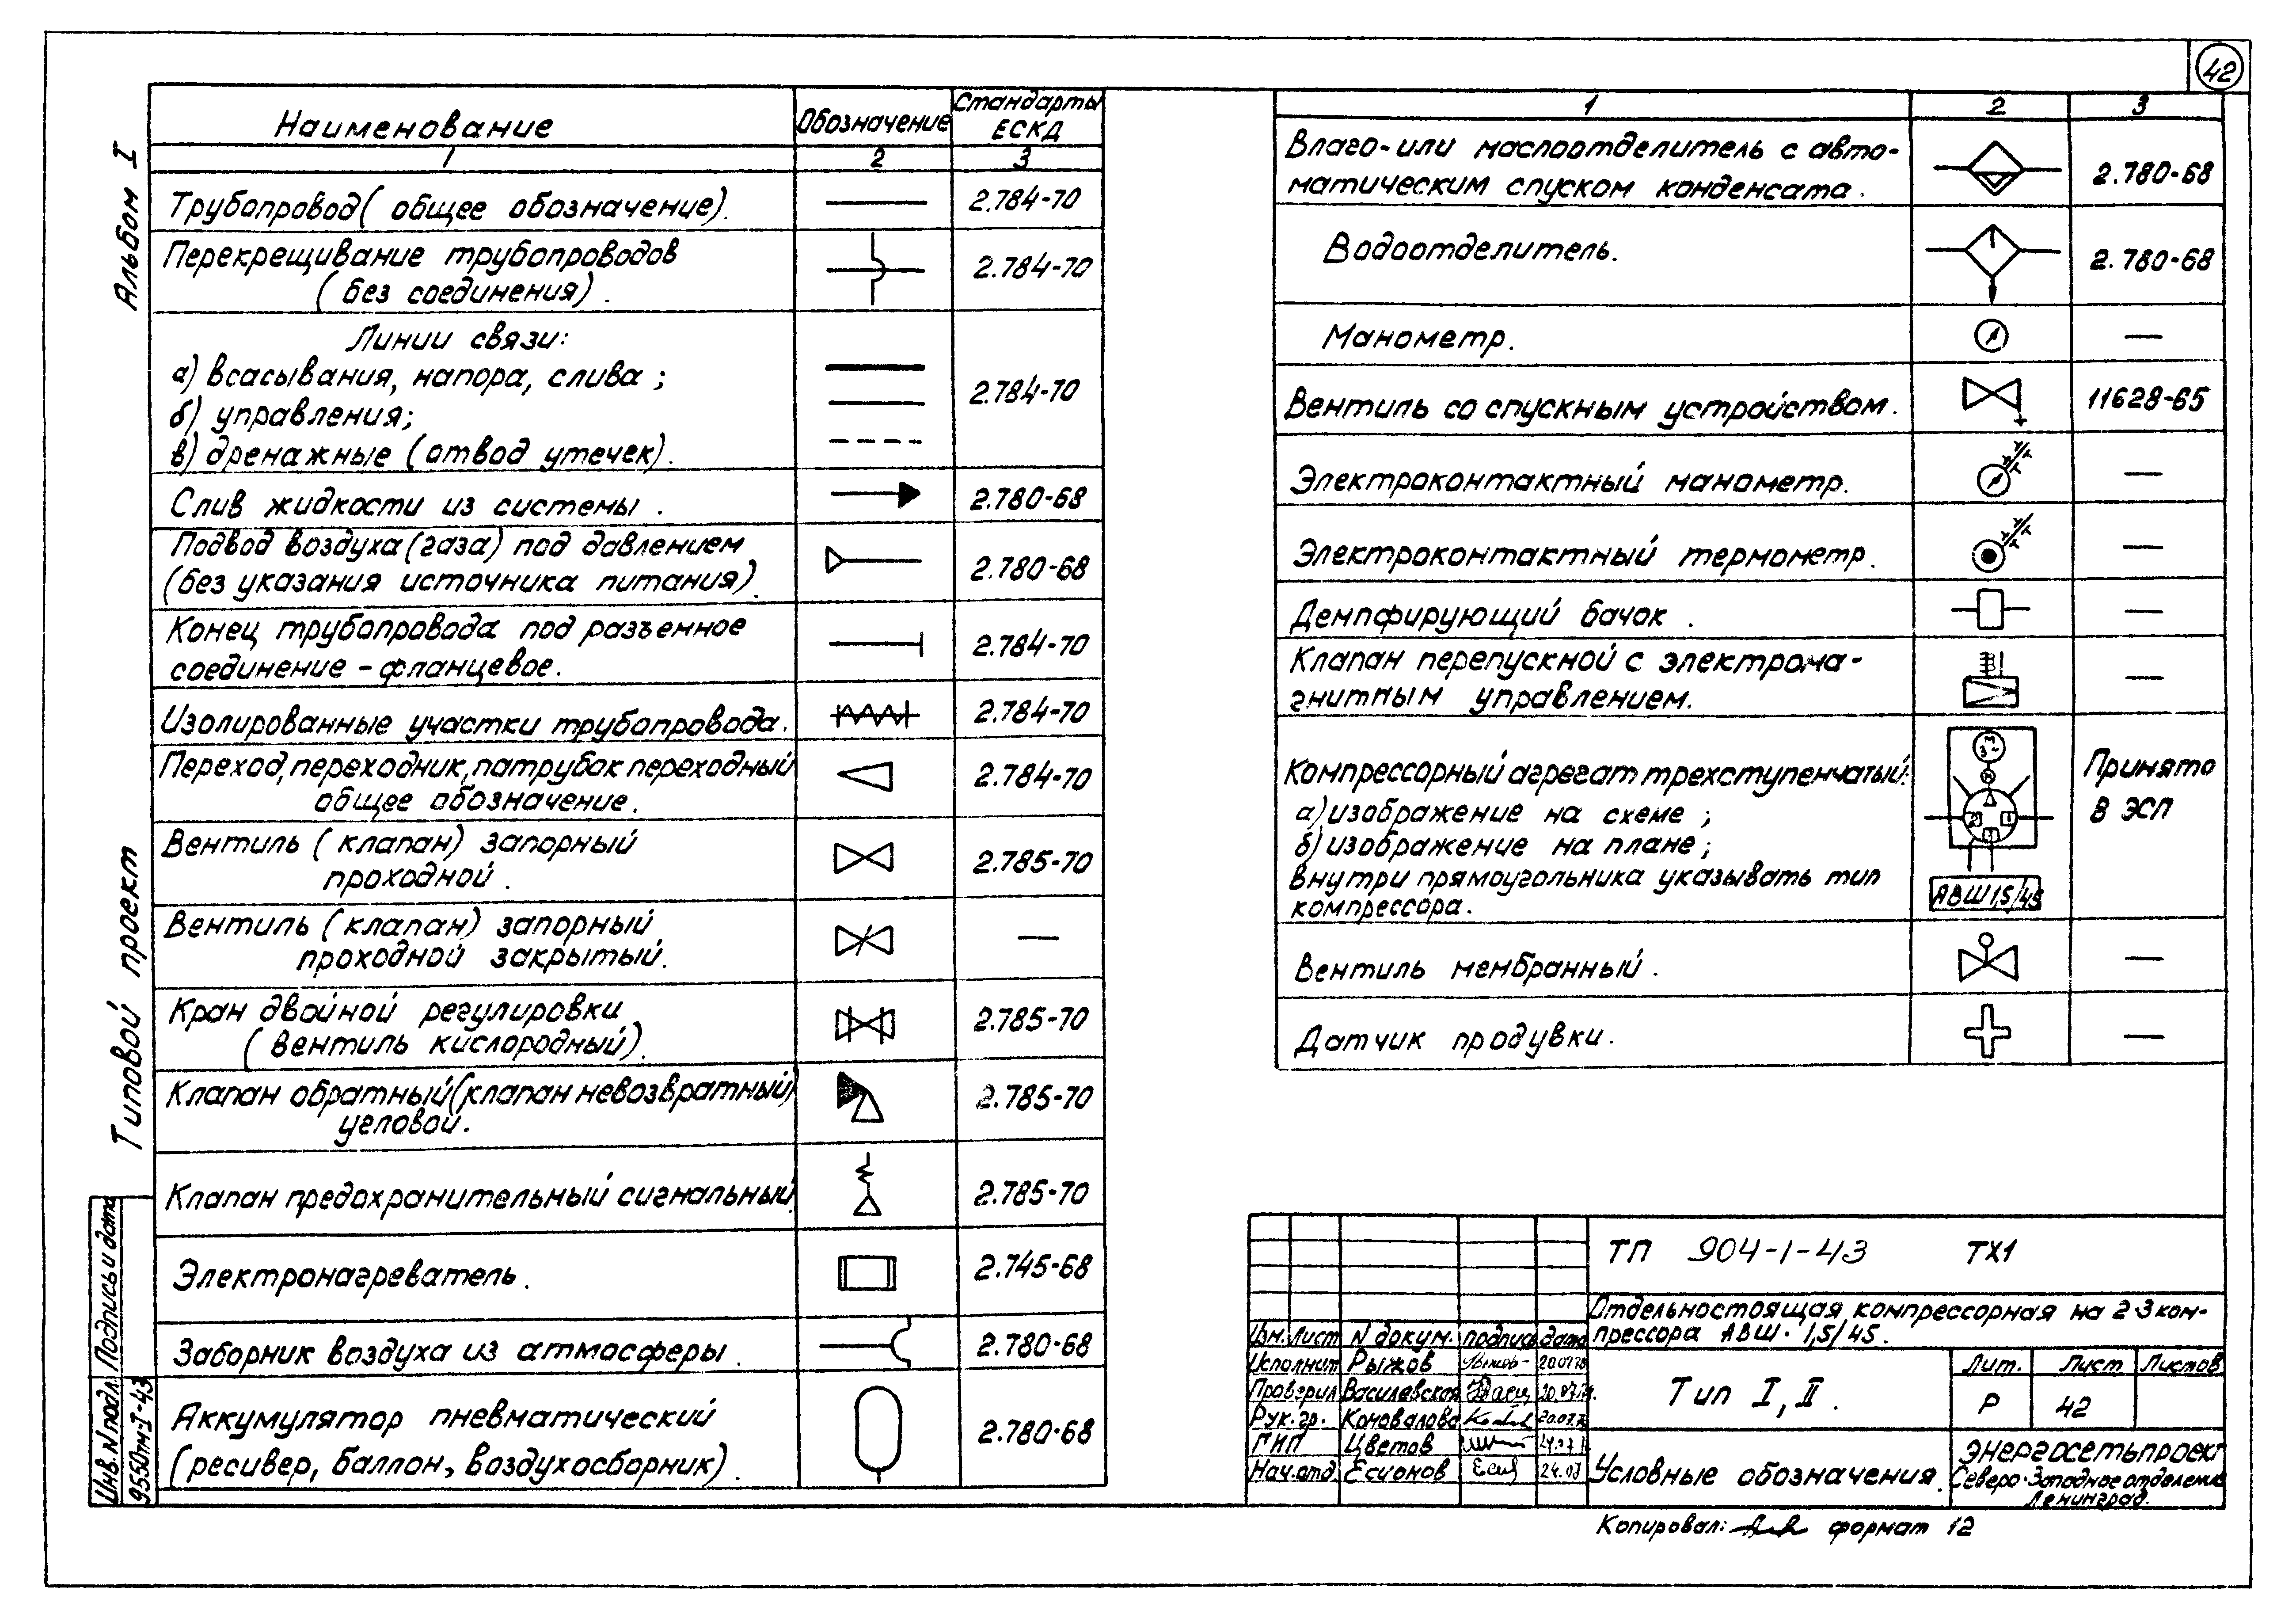 42
Альбом I
Типовой проект
Инв. N подл. Подпись и дата
9550тм-I-43
Наименование Обозначение Стандарты ЕСКД
1 2 3
Трубопровод ( общее обозначение). 2.784-70
Перекрещивание трубопроводов
( без соединения) . 2.784-70
Линии связи:
а) всасывания, напора, слива ;
б) управления; 2.784-70
в) дренажные (отвод утечек).
Слив жидкости из системы . 2.780-68
Подвод воздуха (газа) под давлением
(без указания источника питания). 2.780-68
Конец трубопровода под разъемное
соединение - фланцевое. 2.784-70
Изолированные участки трубопровода. 2.784-70
Переход, переходник, патрубок переходный
общее обозначение. 2.784-70
Вентиль ( клапан) запорный
проходной . 2.785-70
Вентиль ( клапан) запорный
проходной закрытый. —
Кран двойной регулировки
( вентиль кислородный). 2.785-70
Клапан обратный (клапан невозвратный)
угловой. 2.785-70
Клапан предохранительный сигнальный. 2.785-70
Электронагреватель. 2.745-68
Заборник воздуха из атмосферы. 2.780-68
Аккумулятор пневматический
(ресивер, баллон, воздухосборник). 2.780-68
1 2 3
Влаго- или маслоотделитель с авто-
матическим спуском конденсата. 2.780-68
Водоотделитель. 2.780-68
Манометр. —
Вентиль со спускным устройством. 11628-65
Электроконтактный манометр. —
Электроконтактный термометр. —
Демпфирующий бачок . —
Клапан перепускной с электрома-
гнитным управлением. —
Компрессорный агрегат трехступенчатый:
а) изображение на схеме ;
б) изображение на плане ;
внутри прямоугольника указывать тип
компрессора.
М
3~
2 1
3
АВШ 1,5/45
Принято
в ЭСП
Вентиль мембранный. —
Датчик продувки. —
ТП 904-1-43 ТХ1
Отдельностоящая компрессорная на 2-3 ком-
прессора АВШ- 1,5/45.
Изм. Лист N докум. подпись дата
Исполнит Рыжов
Проверил Василевская
Рук. гр. Коновалова
ГИП Цветов
Нач. отд. Есионов 24.07
Тип I, II .
Лит. Лист Листов
Р 42
Условные обозначения.
ЭНЕРГОСЕТЬПРОЕКТ
Северо-Западное отделение
Ленинград.
Копировал: формат 12